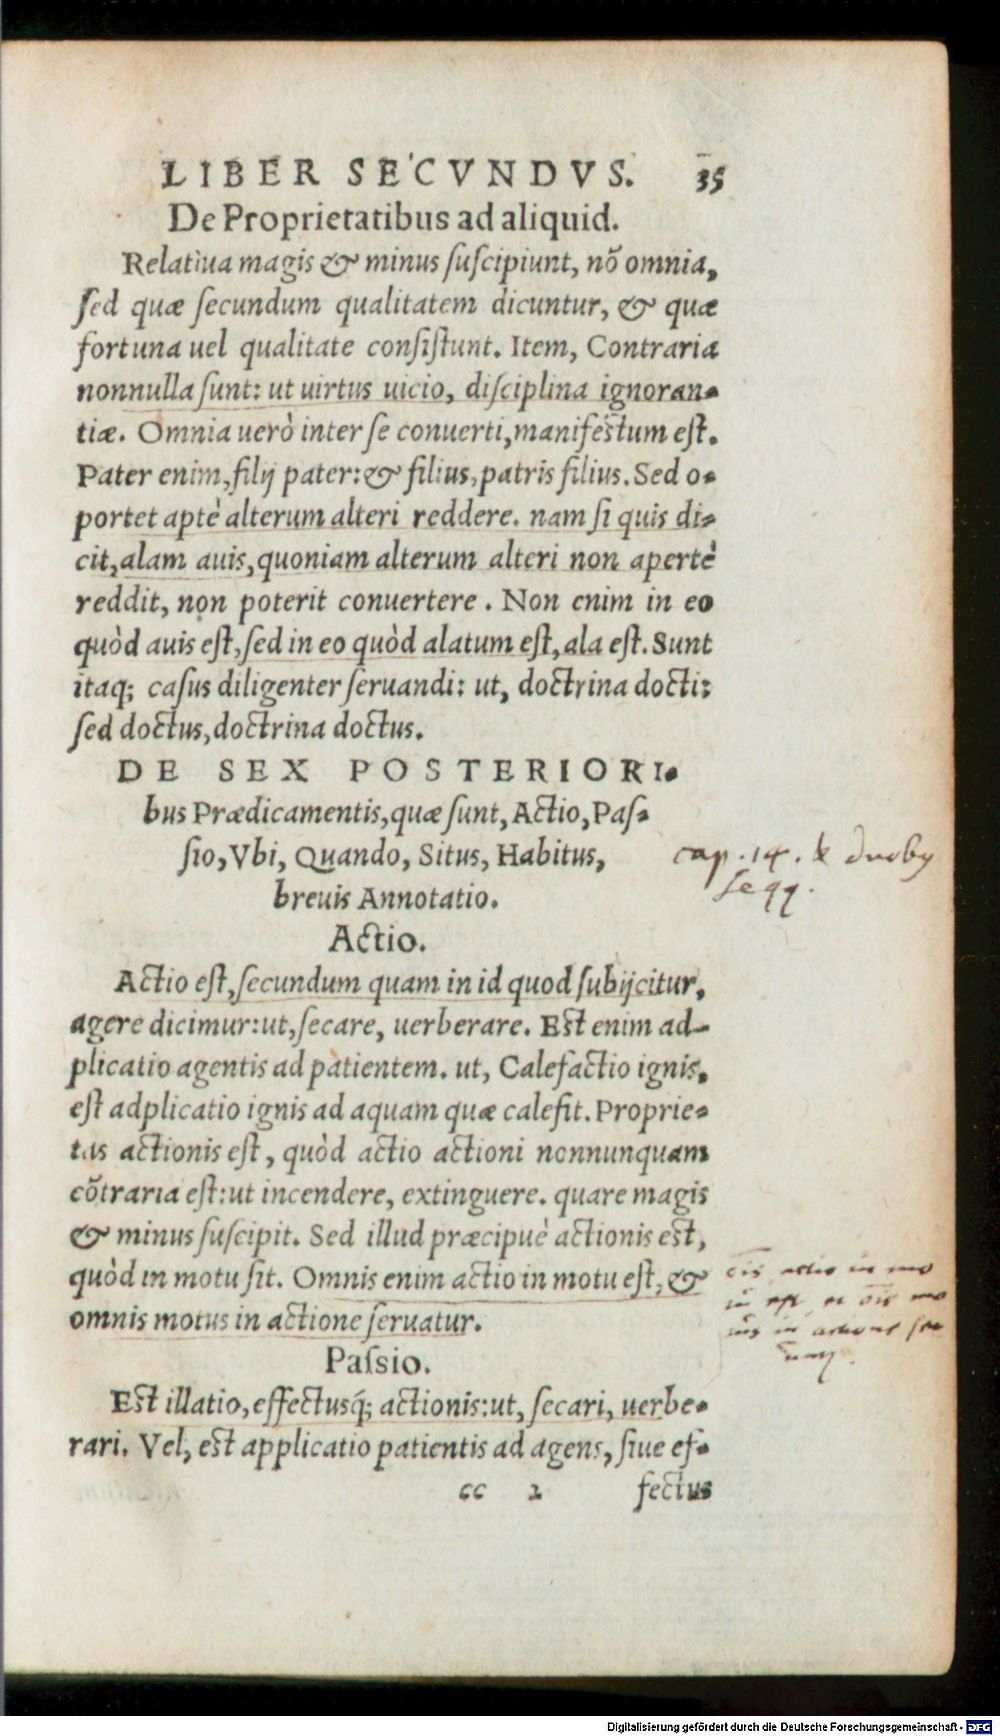 LIBER SECVNDVS. 35
De Proprietatibus ad aliquid.
Relatiua magis & minus suscipiunt, nō omnia,
sed quæ secundum qualitatem dicuntur, & quæ
fortuna uel qualitate consistunt. Item, Contraria
nonnulla sunt: ut uirtus uicio, disciplina ignoran-
tiæ. Omnia uerò inter se conuerti, manifestum est.
Pater enim, filij pater: & filius, patris filius. Sed o-
portet aptè alterum alteri reddere. nam si quis di-
cit, alam auis, quoniam alterum alteri non apertè
reddit, non poterit conuertere. Non enim in eo
quòd auis est, sed in eo quòd alatum est, ala est. Sunt
itaq; casus diligenter seruandi: ut, doctrina docti:
sed doctus, doctrina doctus.
DE SEX POSTERIORI-
bus Prædicamentis, quæ sunt, Actio, Pas-
sio, Vbi, Quando, Situs, Habitus,
breuis Annotatio.
cap. 14. & duoby
seqq.
Actio.
Actio est, secundum quam in id quod subijcitur,
agere dicimur: ut, secare, uerberare. Est enim ad-
plicatio agentis ad patientem. ut, Calefactio ignis,
est adplicatio ignis ad aquam quæ calefit. Proprie-
tas actionis est, quòd actio actioni nonnunquam
cōtraria est: ut incendere, extinguere. quare magis
& minus suscipit. Sed illud præcipuè actionis est,
quòd in motu sit. Omnis enim actio in motu est, &
omnis motus in actione seruatur.
oīs actio in mo
tu est, et oīs mo
tus in actione ser
Passio.
Est illatio, effectusq́; actionis: ut, secari, uerbe-
rari. Vel, est applicatio patientis ad agens, siue ef-
cc 2 fectus
Digitalisierung gefördert durch die Deutsche Forschungsgemeinschaft - DFG